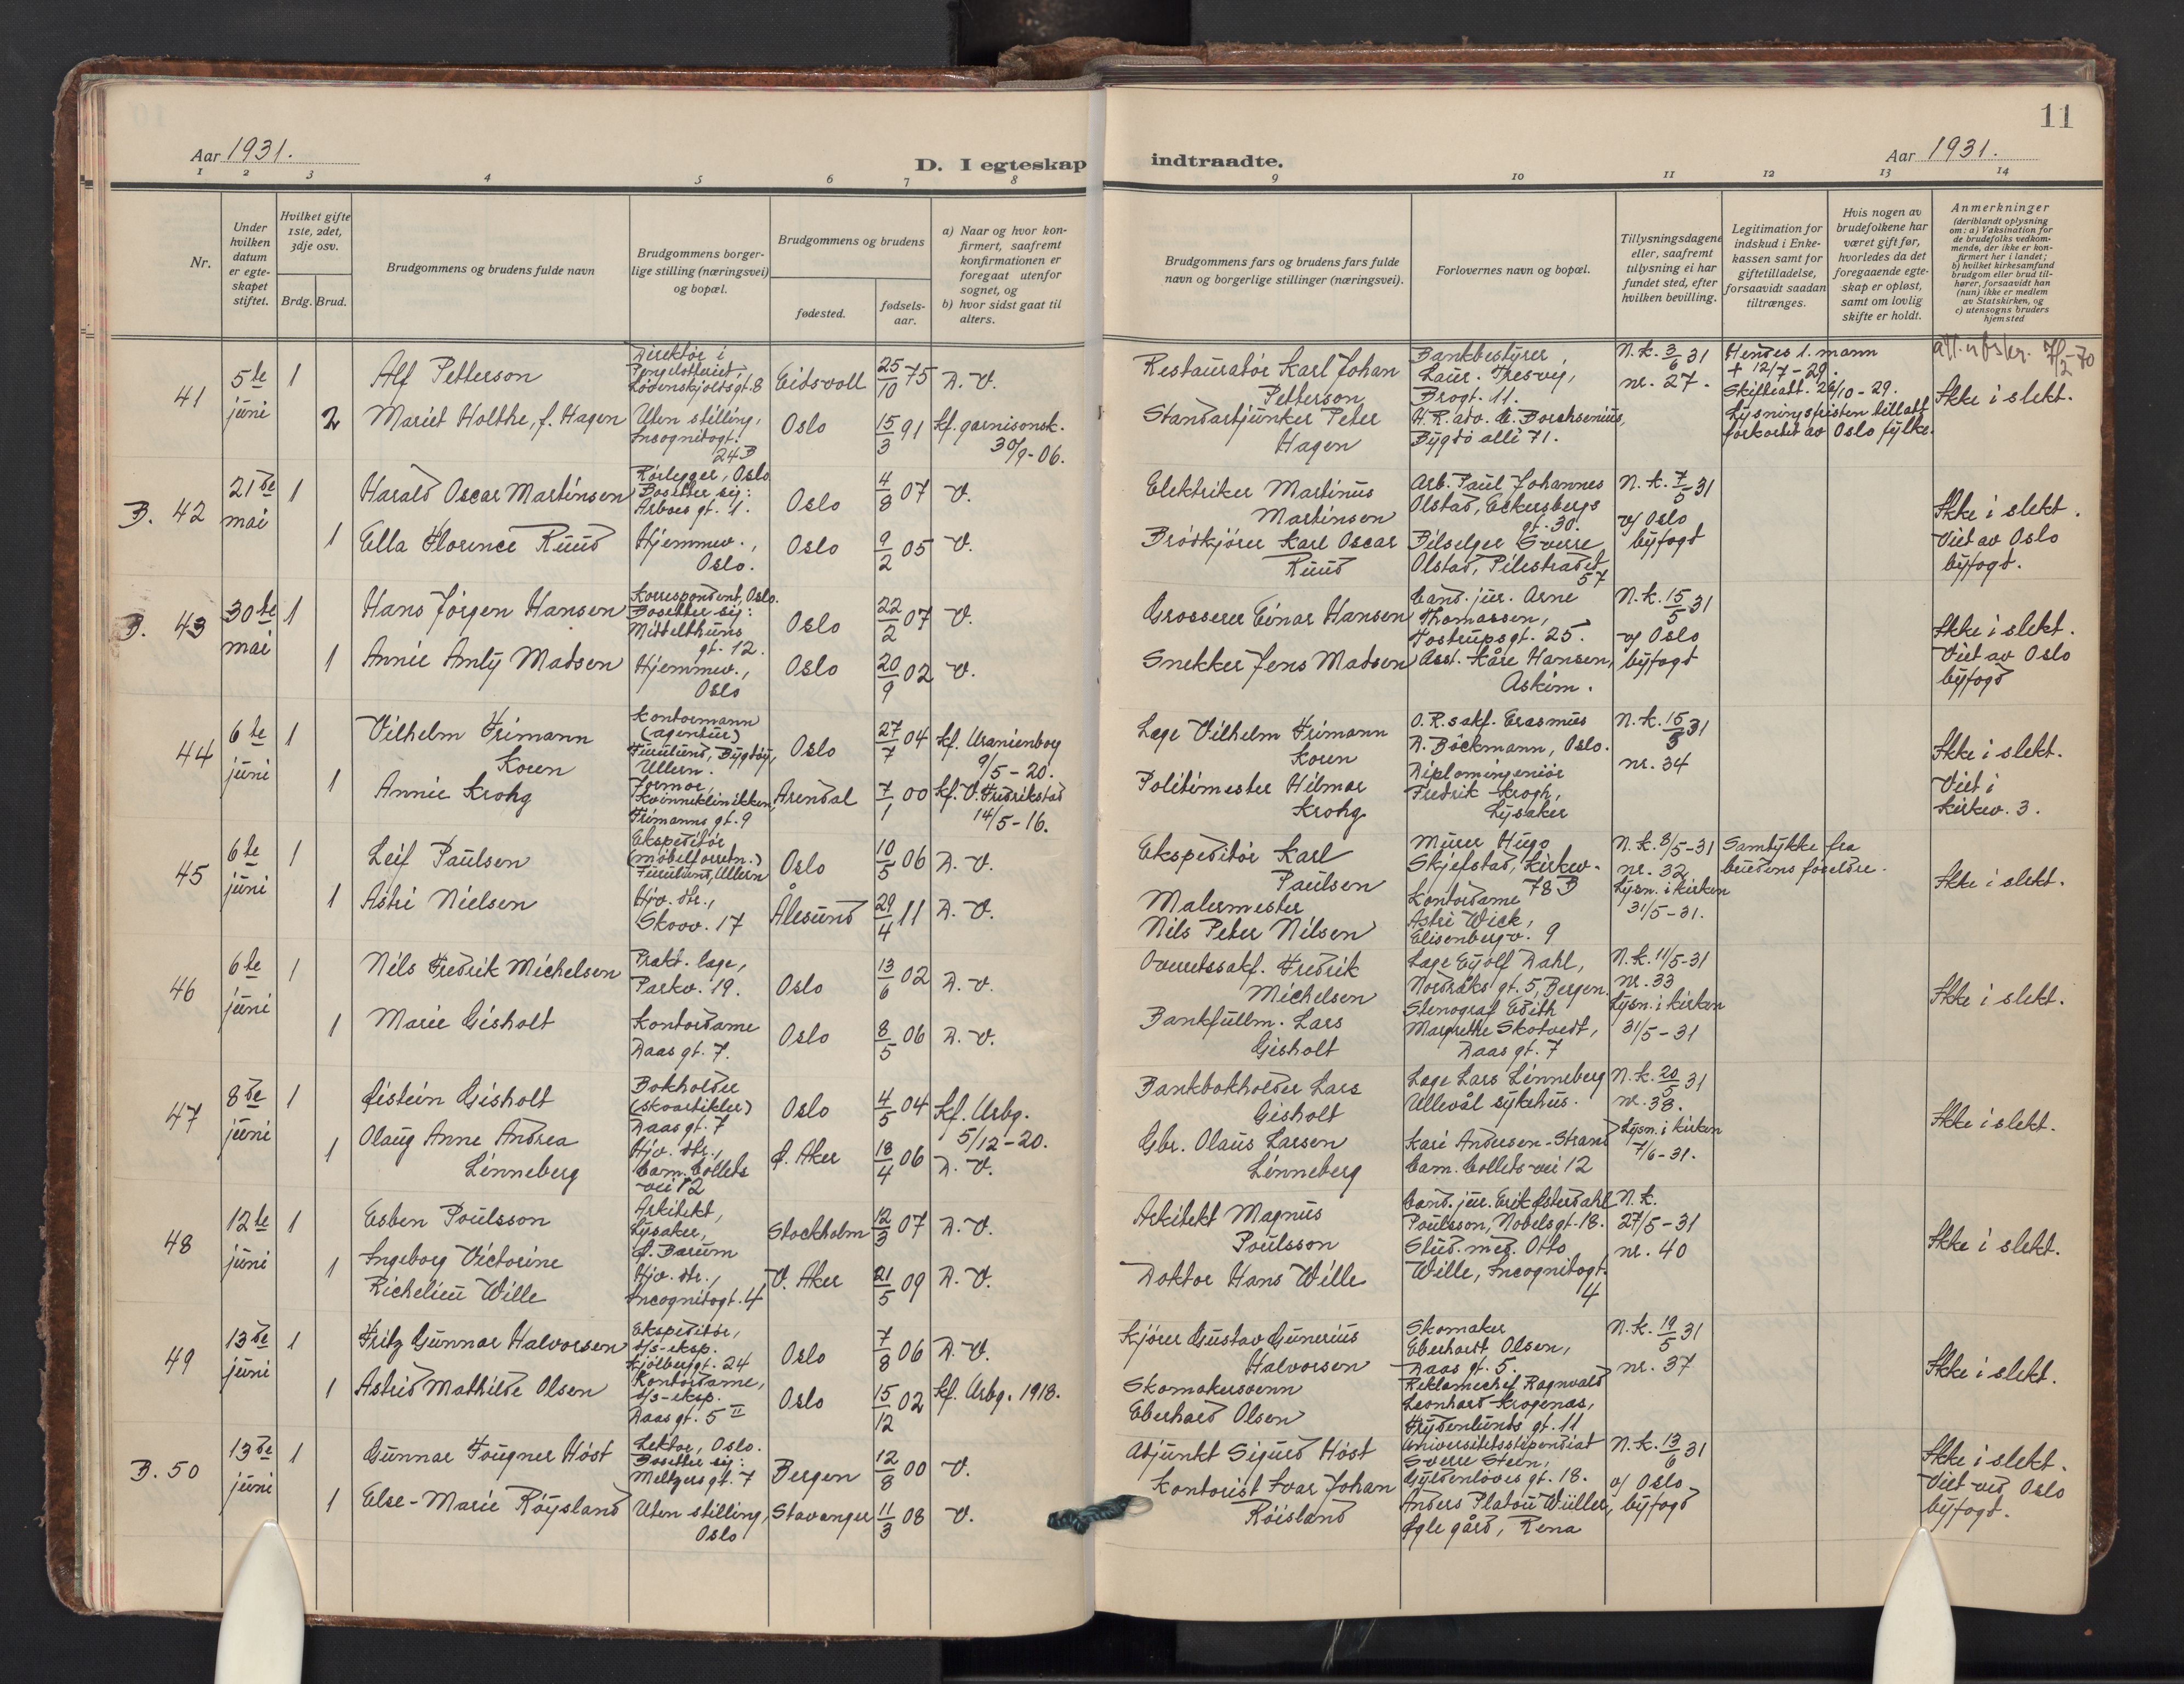 11
Aar 1931.
D. I egteskap indtraadte.
Aar 1931.
1 2 3 4 5 6 7 8 9 10 11 12 13 14
Nr.
Under hvilken datum er egteskapet stiftet.
Hvilket gifte 1ste, 2det, 3dje osv.
Brdg. Brud.
Brudgommens og brudens fulde navn
Brudgommens borgerlige stilling (næringsvei) og bopæl.
Brudgommens og brudens
fødested.
fødselsaar.
a) Naar og hvor konfirmert, saafremt konfirmationen er foregaat utenfor sognet, og
b) hvor sidst gaat til alters.
Brudgommens fars og brudens fars fulde navn og borgerlige stillinger (næringsvei).
Forlovernes navn og bopæl.
Tillysningsdagene eller, saafremt tillysning ei har fundet sted, efter hvilken bevilling.
Legitimation for indskud i Enkekassen samt for giftetilladelse, forsaavidt saadan tiltrænges.
Hvis nogen av brudefolkene har været gift før, hvorledes da det foregaaende egteskap er opløst, samt om lovlig skifte er holdt.
Anmerkninger
(deriblandt oplysning om: a) Vaksination for de brudefolks vedkommende, der ikke er konfirmert her i landet; b) hvilket kirkesamfund brudgom eller brud tilhører, forsaavidt han (hun) ikke er medlem av Statskirken, og c) utensogns bruders hjemsted
41
5te juni
1
Alf Petterson
Direktør i
Pengelotteriet
Lødenskjoldsgt. 8
Eidsvoll
25/10 75
D. V.
Restauratør Karl Johan
Petterson
Bankbestyrer,
Laur. Thesvig,
Brogt. 11.
N.k. 3/6 31
nr. 27.
Hendes 1. mann
+ 12/7-29.
Skifteatt. 26/10-29.
Ikke i slekt.
2
Mariet Holthe, f. Hagen
Uten stilling,
Incognitogt.
24B
Oslo
15/3 91
kf. garnisonsk.
30/9-06.
Standartjunker Peter
Hagen
H.R.adv. C. Borchsenius,
Bygdø allé 71.
Lysningsfristen tillatt
forkortet av Oslo fylke.
B. 42
21de mai
1
Harald Oscar Martinsen
Rørlegger, Oslo
Bosetter sig:
Arboes gt. 1.
Oslo
4/8 07
V.
Elektriker Martinus
Martinsen
Arb. Paul Johannes
Olstad, Eckersbergs
gt. 30.
N.k. 7/5 31
v/ Oslo
byfogd
Ikke i slekt.
Viet av Oslo
byfogd.
1
Ella Florence Ruud
Hjemmev.,
Oslo.
Oslo
9/2 05
V.
Brødkjører Karl Oscar
Ruud
Bilselger Sverre
Olstad, Pilestradet
57
B. 43
30te mai
1
Hans Jørgen Hansen
Korrespondent, Oslo.
Bosetter sig:
Middelthuns
gt. 12.
Oslo
22/2 07
V.
Grosserer Einar Hansen
Cand. jur. Arne
Thomassen,
Tostrupsgt. 25.
N.k. 15/5 31
v/ Oslo
byfogd
Ikke i slekt.
Viet av Oslo
byfogd
1
Annie Amly Madsen
Hjemmev.,
Oslo
Oslo
20/9 02
V.
Snekker Jens Madsen
Asst. Kåre Hansen,
Askim.
44
6te juni
1
Vilhelm Frimann
Koren
Kontormann
(agentur)
Furulund, Bygdøy,
Ullern.
Oslo
27/7 04
kf. Uranienborg
9/5-20.
Læge Vilhelm Frimann
Koren
O.R.sakf. Erasmus
D. Bøckmann, Oslo.
N.k. 15/5 31
nr. 34
Ikke i slekt.
Viet i
Kirkev. 3.
1
Annie Krohg
Jormor,
Kvinneklinikken,
Frimanns gt. 9
Arendal
7/1 00
kf. V. Fredrikstad
14/5-16.
Politimester Hilmar
Krohg
Diplomingeniør
Fredrik Krogh,
Lysaker
45
6te juni
1
Leif Paulsen
Ekspeditør
(møbelforretn.)
Furulund, Ullern
Oslo
10/5 06
D. V.
Ekspeditør Karl
Paulsen
Murer Hugo
Skjefstad, Kirkev.
78B
N.k. 8/5-31
nr. 32
Lysn. i kirken
31/5-31.
Samtykke fra
brudens foreldre.
Ikke i slekt.
1
Astri Nielsen
Hjv. dtr.,
Skovv. 17
Ålesund
29/4 11
D. V.
Malermester
Nils Peter Nilsen
Kontordame
Astri Wick,
Elisenbergv. 9
46
6te juni
1
Nils Fredrik Michelsen
Prakt. læge,
Parkv. 19.
Oslo
13/6 02
D. V.
Overretssakf. Fredrik
Michelsen
Læge Eyolf Dahl,
Nordraks gt. 5, Bergen.
N.k. 11/5-31
nr. 33
Lysn. i kirken
31/5-31
Ikke i slekt.
1
Marie Gisholt
Kontordame
Daas gt. 7.
Oslo
8/5 06
D. V.
Bankfullm. Lars
Gisholt
Stenograf Edith
Margrethe Skotvedt,
Daas gt. 7
47
8de juni
1
Øistein Gisholt
Bokholder
(skoartikler)
Daas gt. 7
Oslo
4/5 04
kf. Urbg.
5/12-20.
Bankbokholder Lars
Gisholt
Læge Lars Linneberg
Ullevål sykehus.
N.k. 20/5 31
nr. 38.
Lysn. i kirken
7/6-31.
Ikke i slekt.
1
Olaug Anne Andrea
Linneberg
Hjv. dtr.,
Cam. Colletts
vei 12
Ø. Aker
18/4 06
D. V.
Gbr. Olaus Larsen
Linneberg
Kari Andersen-Strand
Cam. Colletts vei 12
48
12te juni
1
Esben Poulsson
Arkitekt,
Lysaker,
Ø. Bærum
Stockholm
12/3 07
D. V.
Arkitekt Magnus
Poulsson
Cand. jur. Erik Østerdahl
Poulsson, Nobelsgt. 18.
N.k.
27/5-31
nr. 40
Ikke i slekt.
1
Ingeborg Victorine
Richelieu Wille
Hjv. dtr.,
Incognitogt. 4
V. Aker
21/5 09
D. V.
Doktor Hans Wille
Stud. med. Otto
Wille, Incognitogt.
4
49
13de juni
1
Fritz Gunnar Halvorsen
Ekspeditør,
D/s-eksp.
Kjølberggt. 24
Oslo
7/8 06
D. V.
Kjører Gustav Gunerius
Halvorsen
Skomaker
Eberhardt Olsen,
Daas gt. 5.
N.k. 19/5 31
nr. 37
Ikke i slekt.
1
Astrid Mathilde Olsen
Kontordame,
D/s-eksp.
Daas gt. 5 II
Oslo
15/12 02
kf. Urbg. 1918.
Skomakersvenn
Eberhard Olsen
Reklamechef Ragnvald
Leonhard Krogenæs,
Frydenlunds gt. 11
B. 50
13de juni
1
Gunnar Fougner Høst
Lektor, Oslo.
Bosetter sig:
Meltzers gt. 7
Bergen
12/8 00
V.
Adjunkt Sigurd Høst
Universitetsstipendiat
Sverre Steen,
Gyldenløves gt. 18.
N.k. 13/6 31
v/ Oslo
byfogd
Ikke i slekt.
Viet ved Oslo
byfogd.
1
Else-Marie Røysland
Uten stilling,
Oslo
Stavanger
11/3 08
V.
Kontorist Ivar Johan
Røisland
Anders Platou Wüller,
Øgle gård, Rena